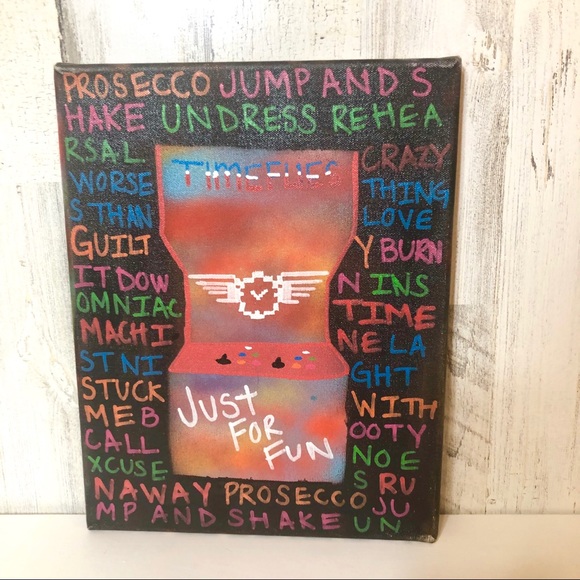 PROSECCO JUMP AND S
HAKE UNDRESS REHEA
RSAL TIMEFLIES CRAZY
WORSE THING
S THAN LOVE
GUILT Y BURN
IT DOW N INS
OMNIAC TIME
MACHI NE LA
ST NI GHT
STUCK WITH
ME B OOTY
CALL NO E
XCUSE S RU
NAWAY PROSECCO JU
MP AND SHAKE UN
JUST
FOR
FUN